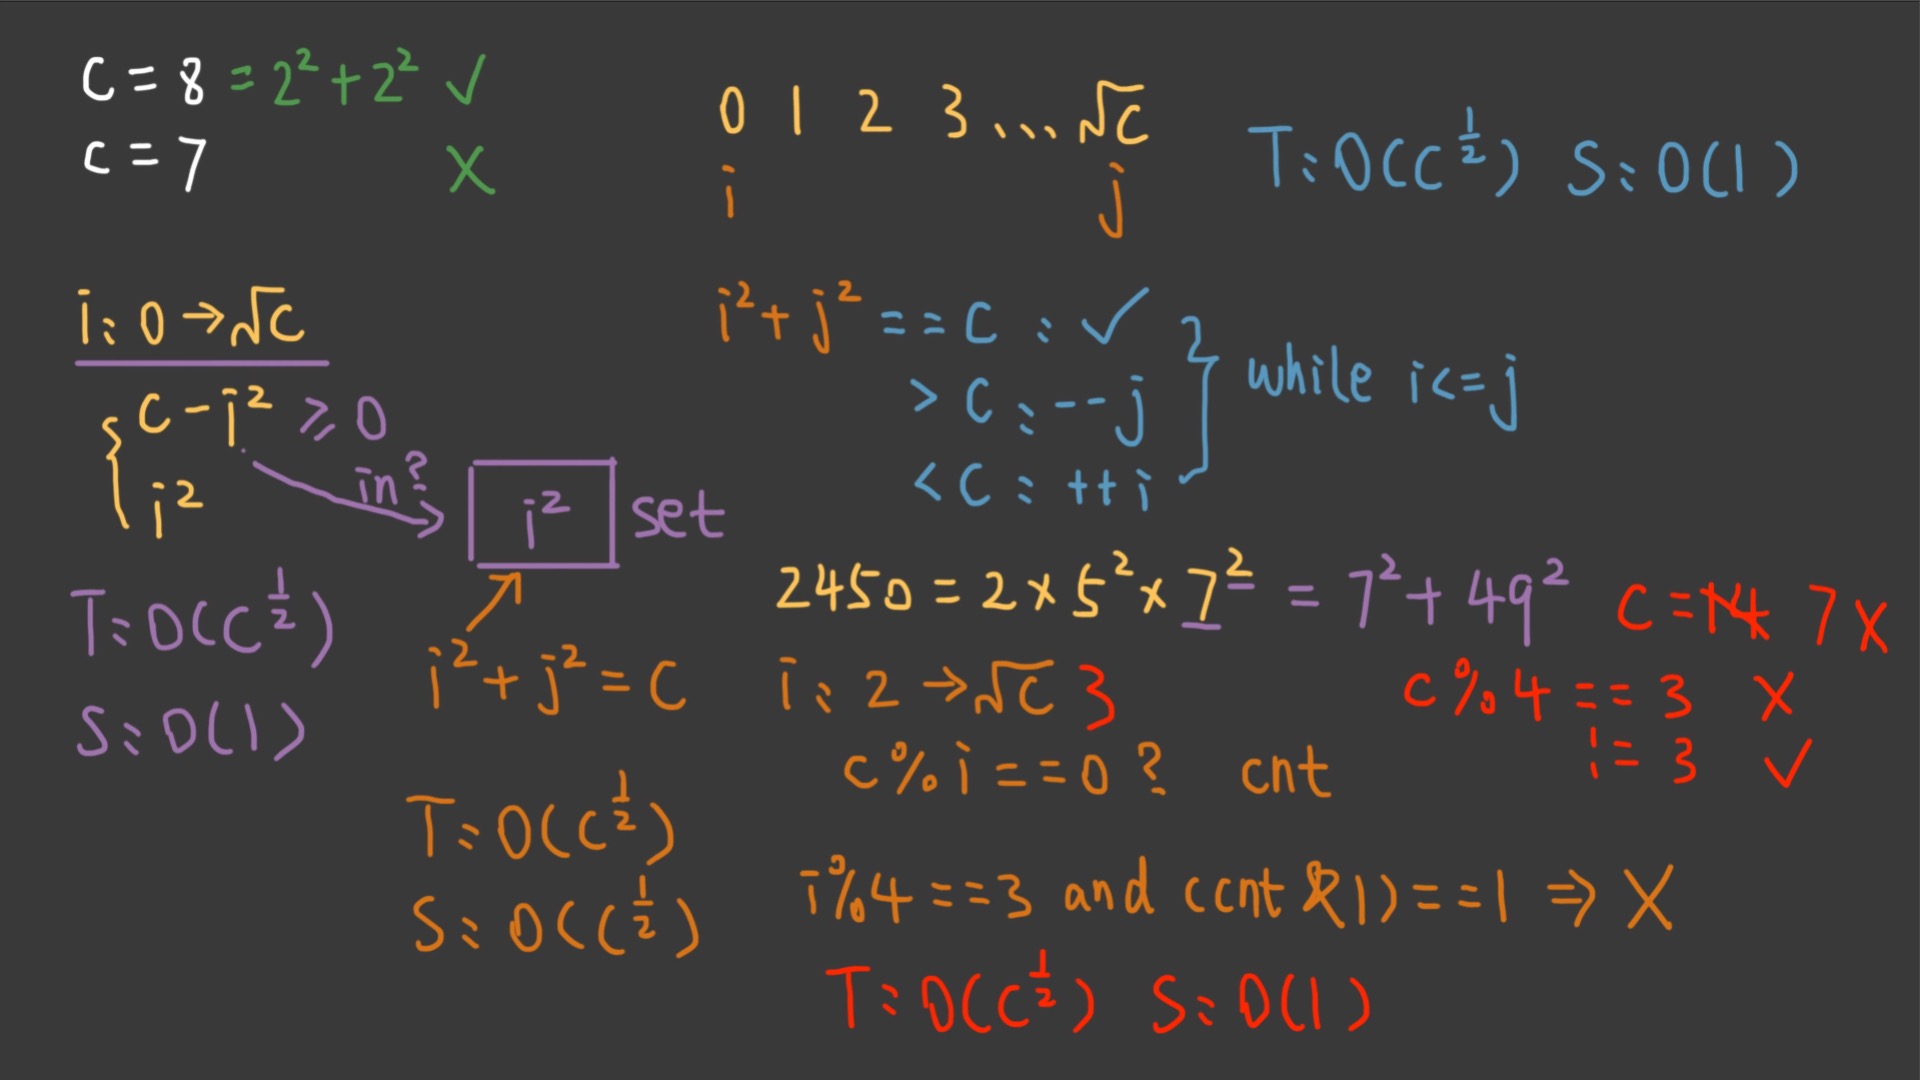 C = 8 = 2² + 2² ✓
C = 7 X
i: 0 → √C
{ C - i² ≥ 0
i²
in?
i² set
T: O(C^½)
S: O(1)
i² + j² = C
T: O(C^½)
S: O(C^½)
0 1 2 3 ... √C
i j
T: O(C^½) S: O(1)
i² + j² == C : ✓
> C : --j
< C : ++i
} while i<=j
2450 = 2 × 5² × 7² = 7² + 49²
i : 2 → √C 3
c%i==0? cnt
i%4==3 and (cnt&1)==1 ⇒ X
T: O(C^½) S: O(1)
C = 14 7 X
c%4 == 3 X
!= 3 ✓